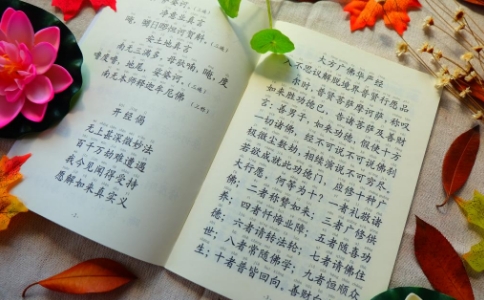 净意业真言
安土地真言
南无三满多,母驮喃,唵,度
噜度噜,地尾,娑婆诃。(三遍)
南无本师释迦牟尼佛(三称)
开经偈
无上甚深微妙法
百千万劫难遭遇
我今见闻得受持
愿解如来真实义
大方广佛华严经
入不思议解脱境界普贤行愿品
尔时,普贤菩萨摩诃萨,称叹
如来胜功德已,告诸菩萨及善财
言:善男子,如来功德,假使十方
一切诸佛,经不可说不可说佛刹
极微尘数劫,相续演说,不可穷尽。
若欲成就此功德门,应修十种广
大行愿。何等为十?一者礼敬诸
佛;二者称赞如来;三者广修供
养;四者忏悔业障;五者随喜功
德;六者请转法轮;七者请佛住
世;八者常随佛学;九者恒顺众
生;十者普皆回向。善财